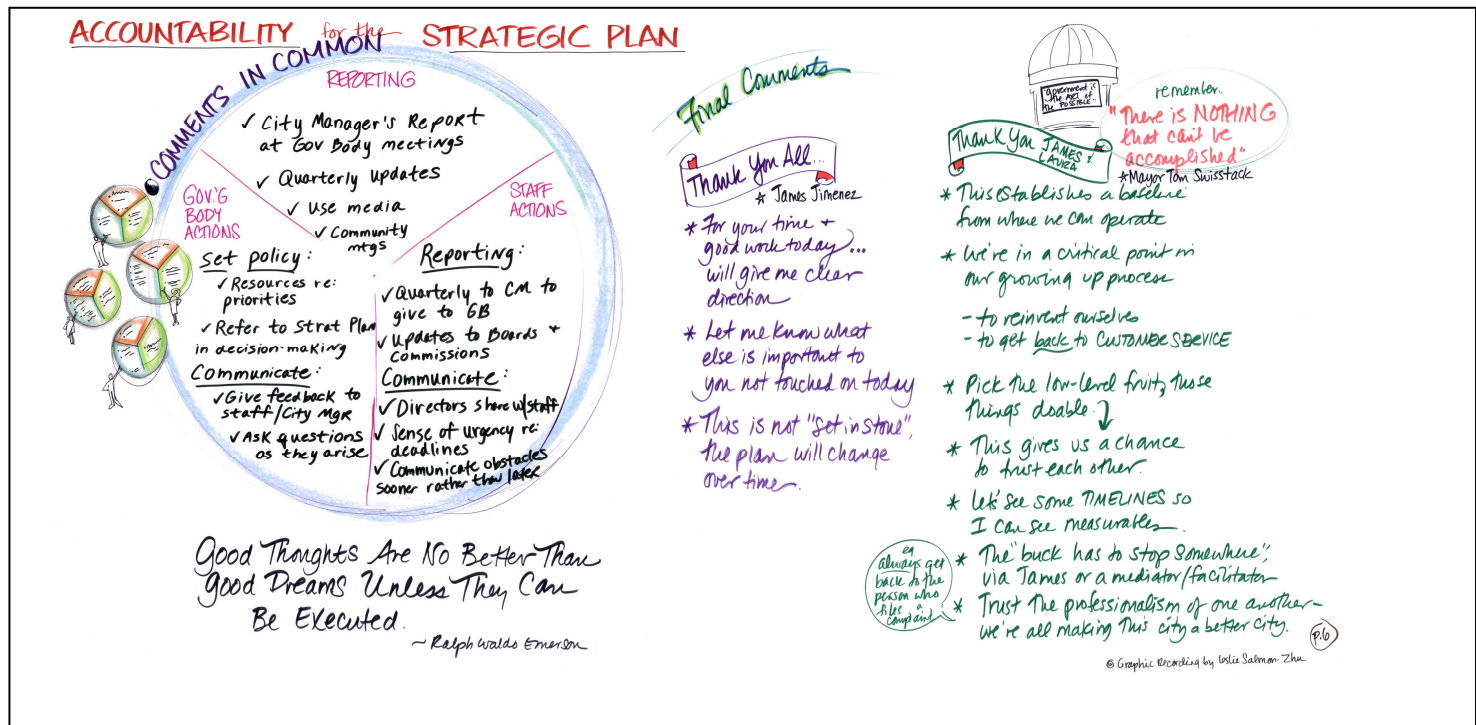 ACCOUNTABILITY for the STRATEGIC PLAN
COMMENTS IN COMMON
REPORTING
✓ City Manager's Report
at Gov Body meetings
✓ Quarterly updates
✓ use media
✓ Community
mtgs
GOV'G
BODY
ACTIONS
Set policy:
✓ Resources re:
priorities
✓ Refer to Strat Plan
in decision-making
Communicate:
✓ Give feedback to
staff/City Mgr
✓ Ask questions
as they arise
STAFF
ACTIONS
Reporting:
✓ Quarterly to CM to
give to GB
✓ updates to Boards +
commissions
Communicate:
✓ Directors share w/staff
✓ Sense of urgency re:
deadlines
✓ Communicate obstacles
sooner rather than later
Good Thoughts Are No Better Than
good Dreams Unless They Can
Be Executed.
~ Ralph Waldo Emerson
Final Comments
Thank You All...
★ James Jimenez
* For your time +
good work today...
will give me clear
direction
* Let me know what
else is important to
you not touched on today
* This is not "set in stone",
the plan will change
over time.
government is
the ART of
the POSSIBLE..
remember..
"There is NOTHING
that can't be
accomplished"
★ Mayor Tom Swisstack
Thank You JAMES &
LAURA
* This establishes a baseline
from where we can operate
* We're in a critical point in
our growing up process
- to reinvent ourselves
- to get back to CUSTOMER SERVICE
* Pick the low-level fruit, those
things doable.
* This gives us a chance
to trust each other.
* Let's see some TIMELINES so
I can see measurables.
* The "buck has to stop somewhere",
via James or a mediator/facilitator
eg
always get
back to the
person who
files a
complaint
* Trust the professionalism of one another-
we're all making this city a better city.
p.6
© Graphic Recording by Leslie Salmon-Zhu